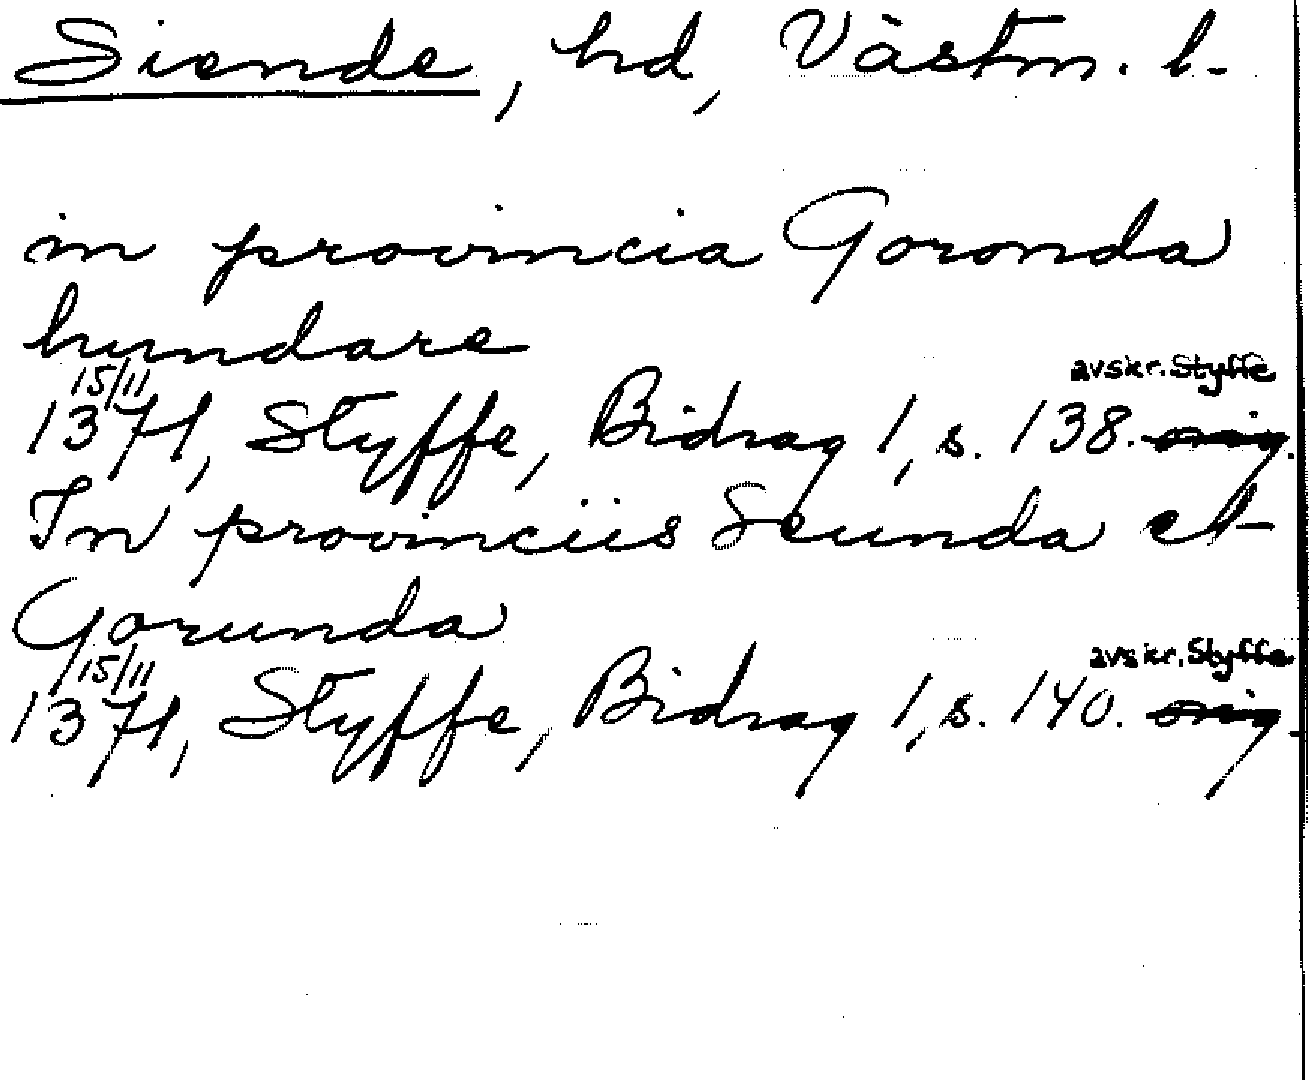 Siende, hd, Västm. l.
in provincia Goronda
hundare
15/11
avskr. Styffe
1371, Styffe, Bidrag 1, s. 138. orig.
In provinciis Seunda et
Gorunda
15/11
avskr. Styffe
1371, Styffe, Bidrag 1, s. 140. orig.